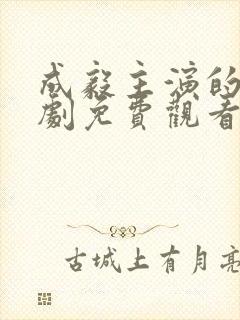 成毅主演的
劇免費觀看
古城上有月亮